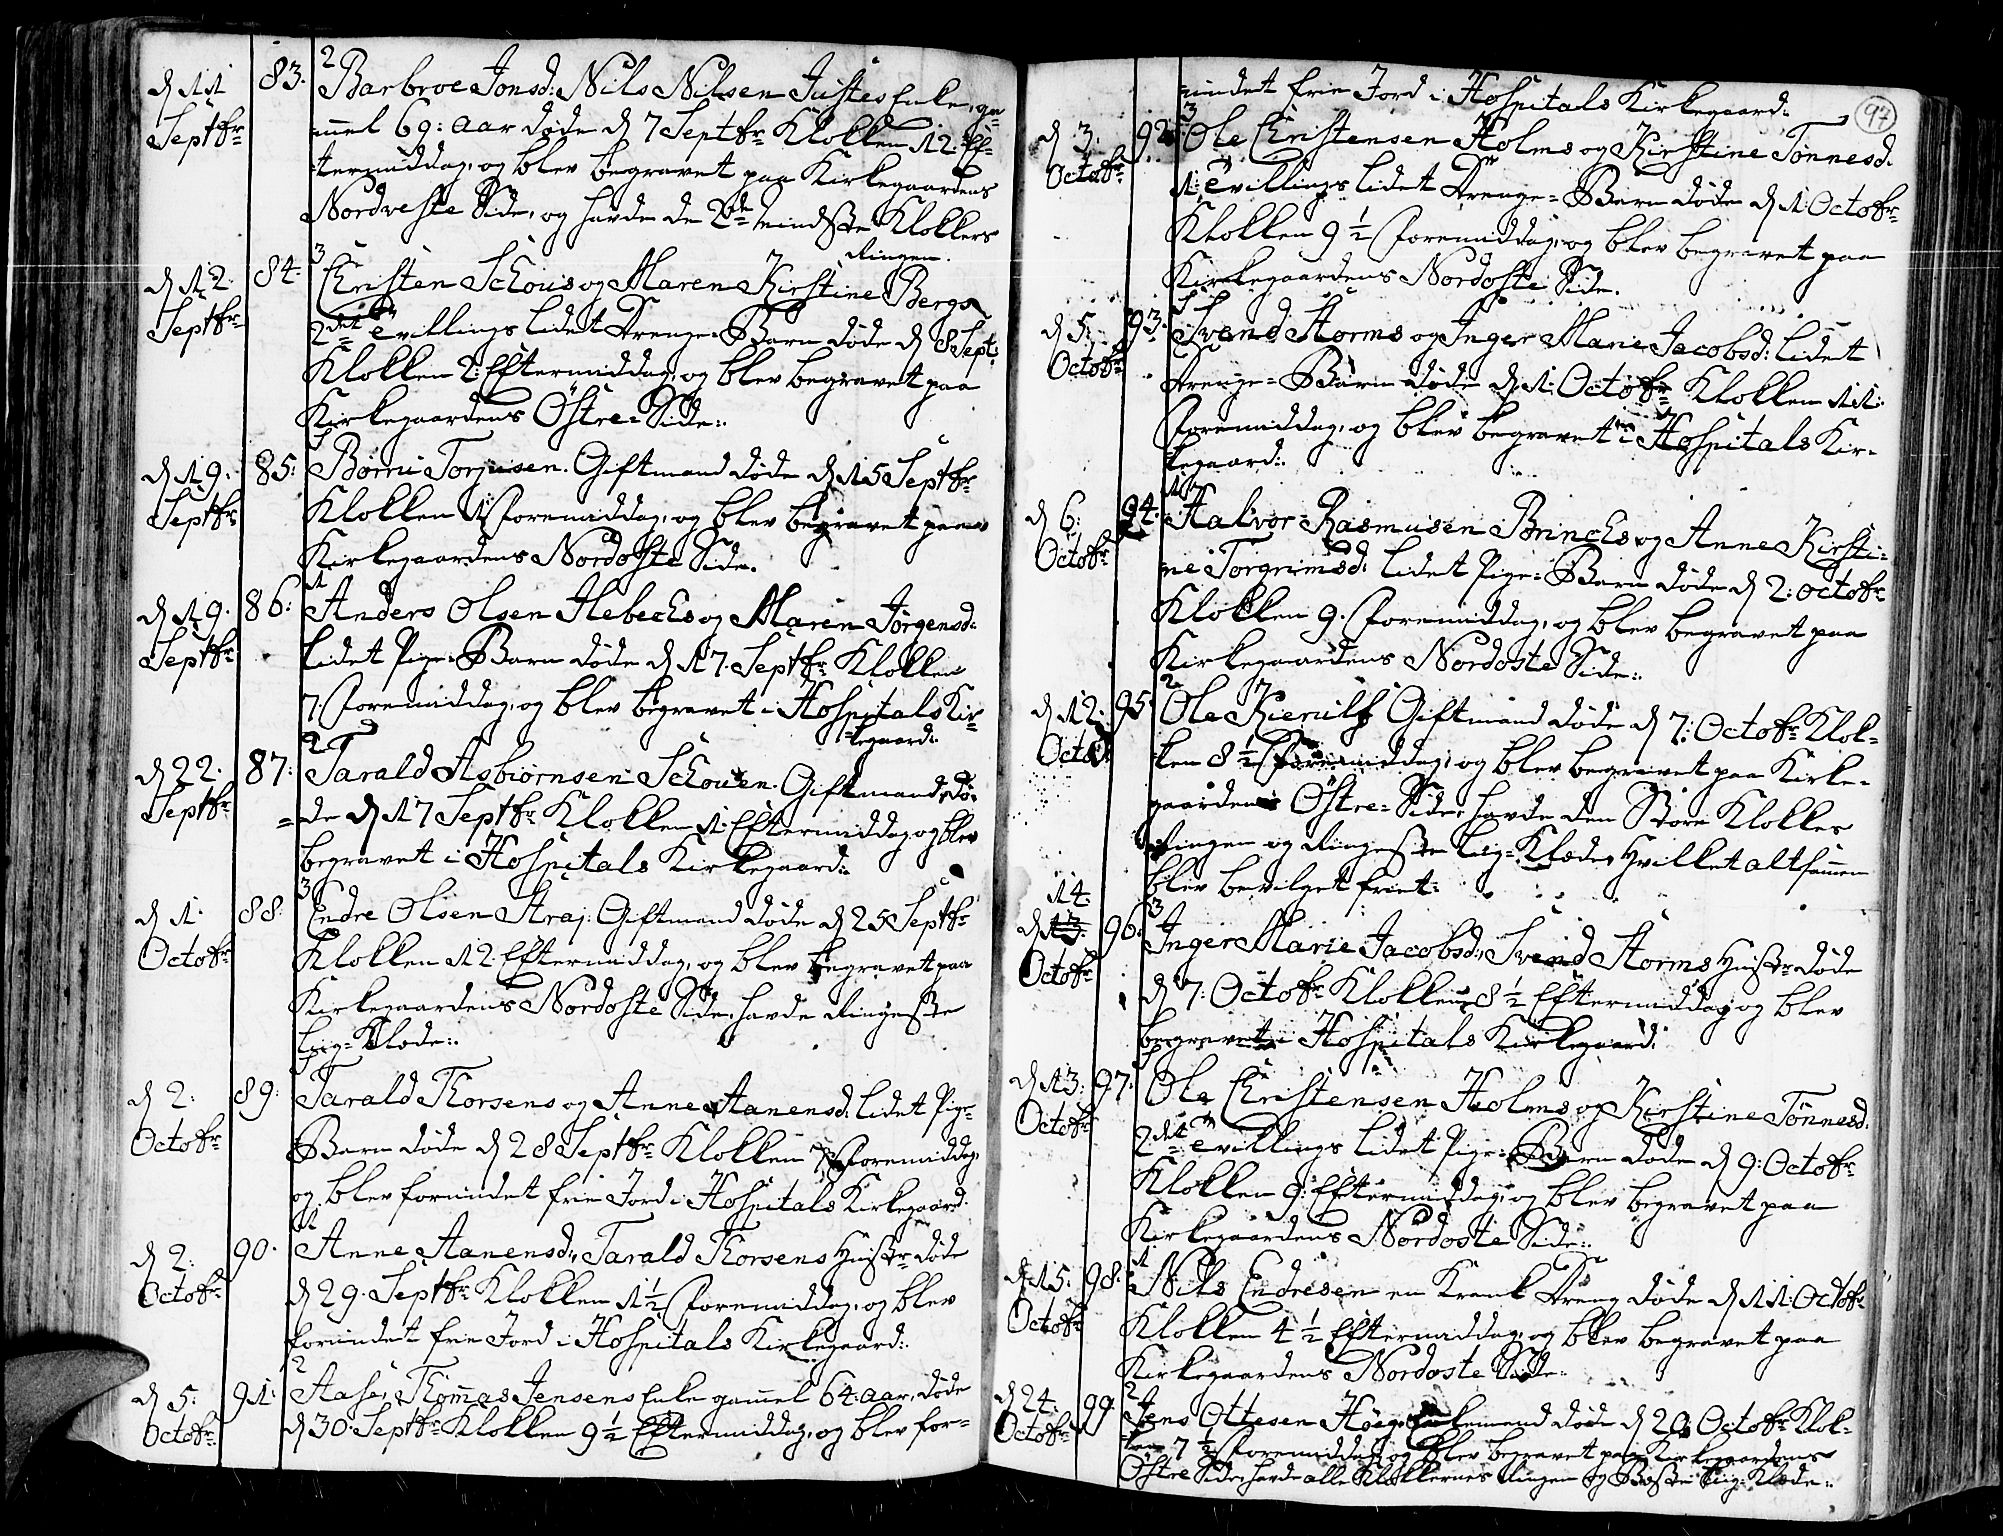 d 11 Septbr 83. 2 Barbroe Jonsd: Nils Nilsen Justes Enke, ga=
mel 69: aar døde d 7 Septbr Klokken 12. Ef=
termiddag, og blev begravet paa Kirkegaardens
Nordveste Side, og havde de 2de mindste Klokkers
Ringen.
d 12. Septbr 84. 3 Christen Schous og Maren Kirstine Bergs
2det Tvillings lidet Drenge=Barn døde d 8 Sept:
Klokken 2. Eftermiddag, og blev begravet paa
Kirkegaardens Østre=Side.
d 19. Septbr 85: Børni Torjusen. Giftmand døde d 15 Septbr
Klokken Formiddag, og blev begravet paa
Kirkegaardens Nordoste Side.
d 19. Septbr 86: 1 Anders Olsen Hebechs og Maren Jørgensd:
lidet Pige=Barn døde d 17. Septbr Klokken
7. Formiddag, og blev begravet i Hospitals Kir=
kegaard:
d 22. Septbr 87: 2 Tarald Asbiørnsen Schouen. Giftmand, dø=
de d 17 Septbr Klokken 1. Eftermiddag og blev
begravet i Hospitals Kirkegaard:
d 1. Octobr 88: 3 Endre Olsen Araj. Giftmand døde d 25 Septbr
Klokken 12. Eftermiddag, og blev begravet paa
Kirkegaardens Nordoste Side, havde Ringeste
Liig=Klæde:
d 2: Octobr 89: Tarald Thorsens og Anne Aanensd: lidet Pige=
Barn døde d 28 Septbr Klokken 7 Formiddag,
og blev forundet frie Jord i Hospitals Kirkegaard.
d 2: Octobr 90. 11 Anne Aanensd:, Tarald Thorsens Hustr: døde
d 29. Septbr Klokken 1½ Formiddag, og blev
forundet frie Jord i Hospitals Kirkegaard:
d 5: Octobr 91: 2 Aase, Thomas Jensens Enke gamel 64: aar, døde
d 30. Septbr Klokken 9½ Eftermiddag, og blev for=
97
undet frie Jord i Hospitals Kirkegaard:
d 3. Octobr 92. 3 Ole Christensen Holms og Kirstine Tønnesd:
1: Tvillings lidet Drenge=Barn døde d 1. Octobr
Klokken 9½ Formiddag, og blev begravet paa
Kirkegaardens Nordoste Side.
d 5. Octobr 93. Svend Storms og Inger Marie Jacobsd: lidet
Drenge=Barn døde d 1. Octobr Klokken 11:
Formiddag, og blev begravet i Hospitals Kir=
kegaard:
d 6. Octobr 94. Halvor Rasmusen Brinchs og Anne Kirsti=
ne Torgrimsd: lidet Pige=Barn døde d 2. Octobr
Klokken 9. Formiddag, og blev begravet paa
Kirkegaardens Nordoste Side:
d 12. Octob 95. 2 Ole Kierulf Giftmand døde d 7. Octobr Klok=
ken 8½ Formiddag, og blev begravet paa Kirke=
gaardens Østre=Side, havde den Store Klokkes
Ringen og Ringeste Liig=Klæde, Hvilket altsamen
blev bevilget friet.
14. d 13. Octobr 96. 3 Inger Marie Jacobsd:, Svend Storms Hustr: døde
d 7. Octobr Klokken 8½ Eftermiddag og blev
begravet i Hospitals Kirkegaard.
d 13. Octobr 97. Ole Christensen Holms og Kirstine Tønnesd.
2det Tvillings lidet Pige=Barn døde d 9. Octobr
Klokken 9. Eftermiddag, og blev begravet paa
Kirkegaardens Nordoste Side:
d 15. Octobr 98. 1 Nils Endresen en Krank Dreng døde d 11. Octobr
Klokken 4½ Eftermiddag, og blev begravet paa
Kirkegaardens Nordoste Side.
d 24. Octobr 99. 2 Jens Ottesen Høeg, Enkemand døde d 20. Octobr Klok=
ken 7½ Formiddag, og blev begravet paa Kirkegaardens
Østre Side, havde alle Klokkernes Ringen og Beste Liig=Klæde: